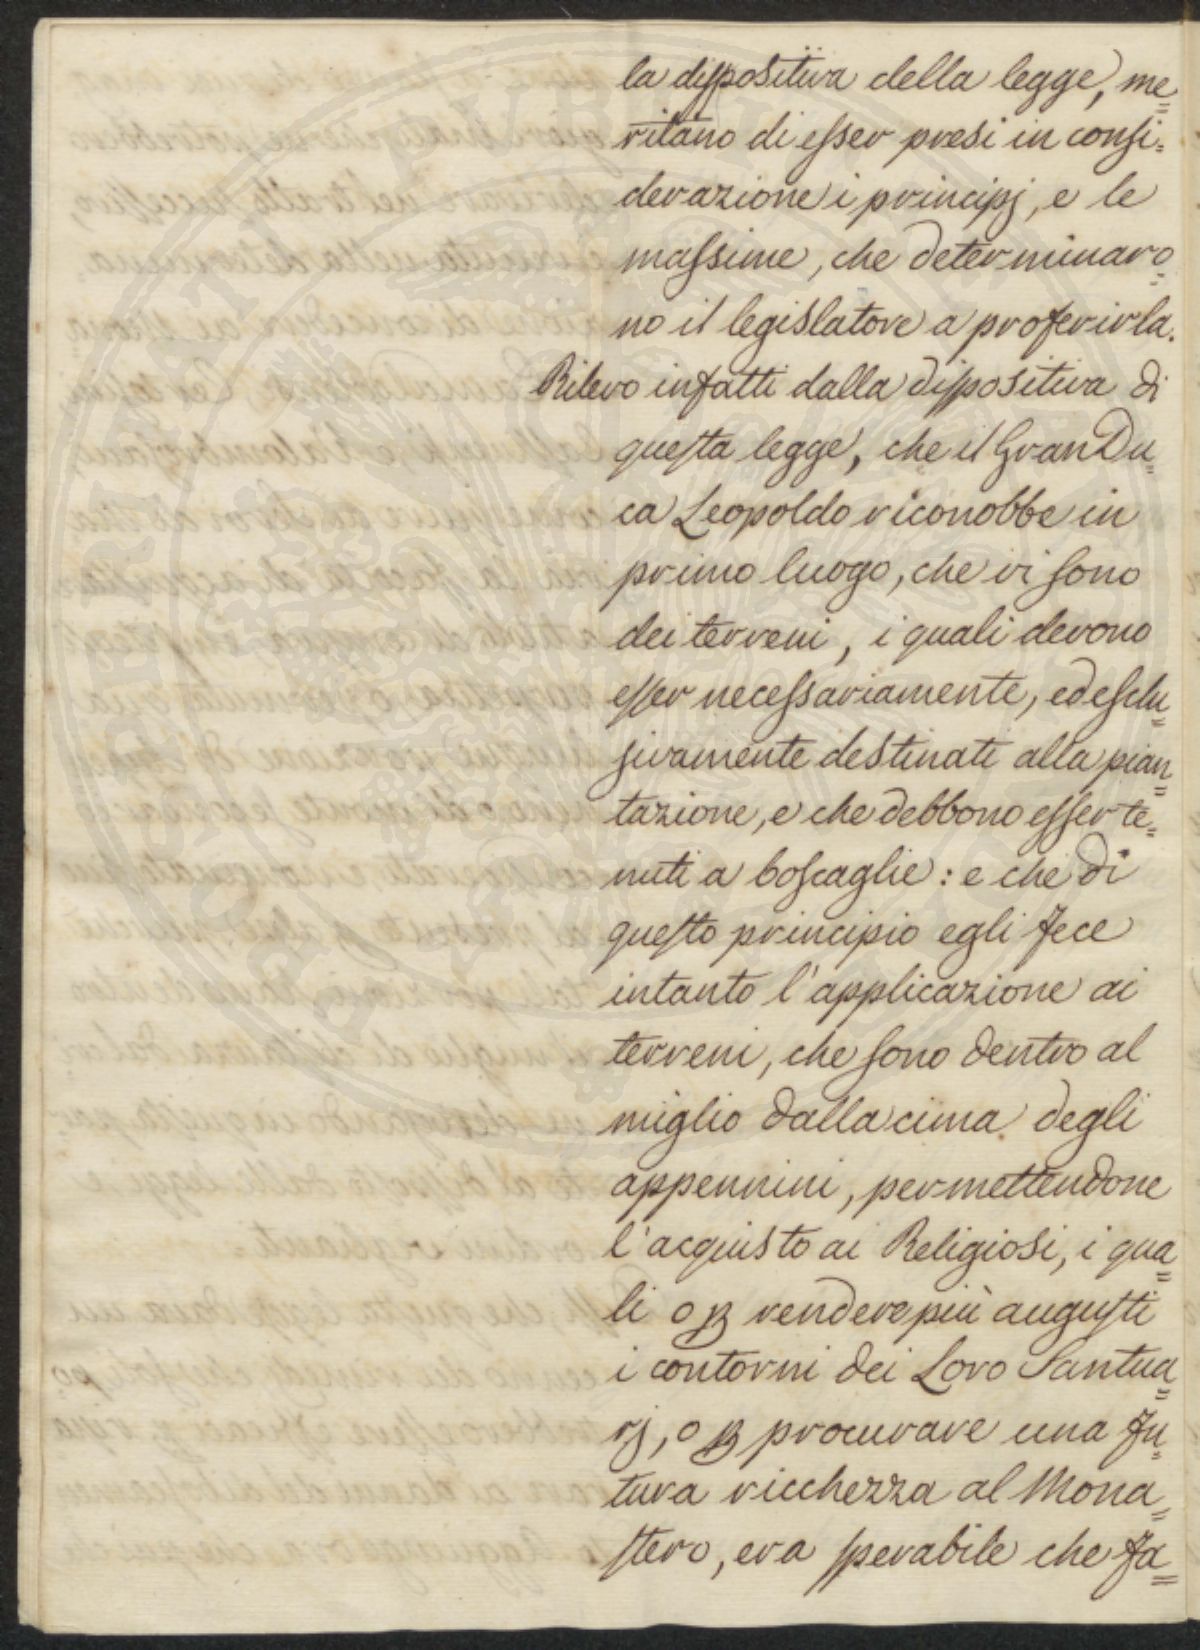 la dispositiva della legge, me=
ritano di esser presi in consi=
derazione i principj, e le
massime, che determinaro=
no il legislatore a proferirla.
Rilevo infatti dalla dispositiva di
questa legge, che il Gran Du=
ca Leopoldo riconobbe in
primo luogo, che vi sono
dei terreni, i quali devono
esser necessariamente, ed esclu=
sivamente destinati alla pian=
tazione, e che debbono esser te=
nuti a boscaglie: e che di
questo principio egli fece
intanto l'applicazione ai
terreni, che sono dentro al
miglio dalla cima degli
appennini, permettendone
l'acquisto ai Religiosi, i qua=
li o ꝑ rendere più augusti
i contorni dei Loro Santua=
rj, o ꝑ procurare una fu=
tura ricchezza al Mona=
stero, era sperabile che fa=